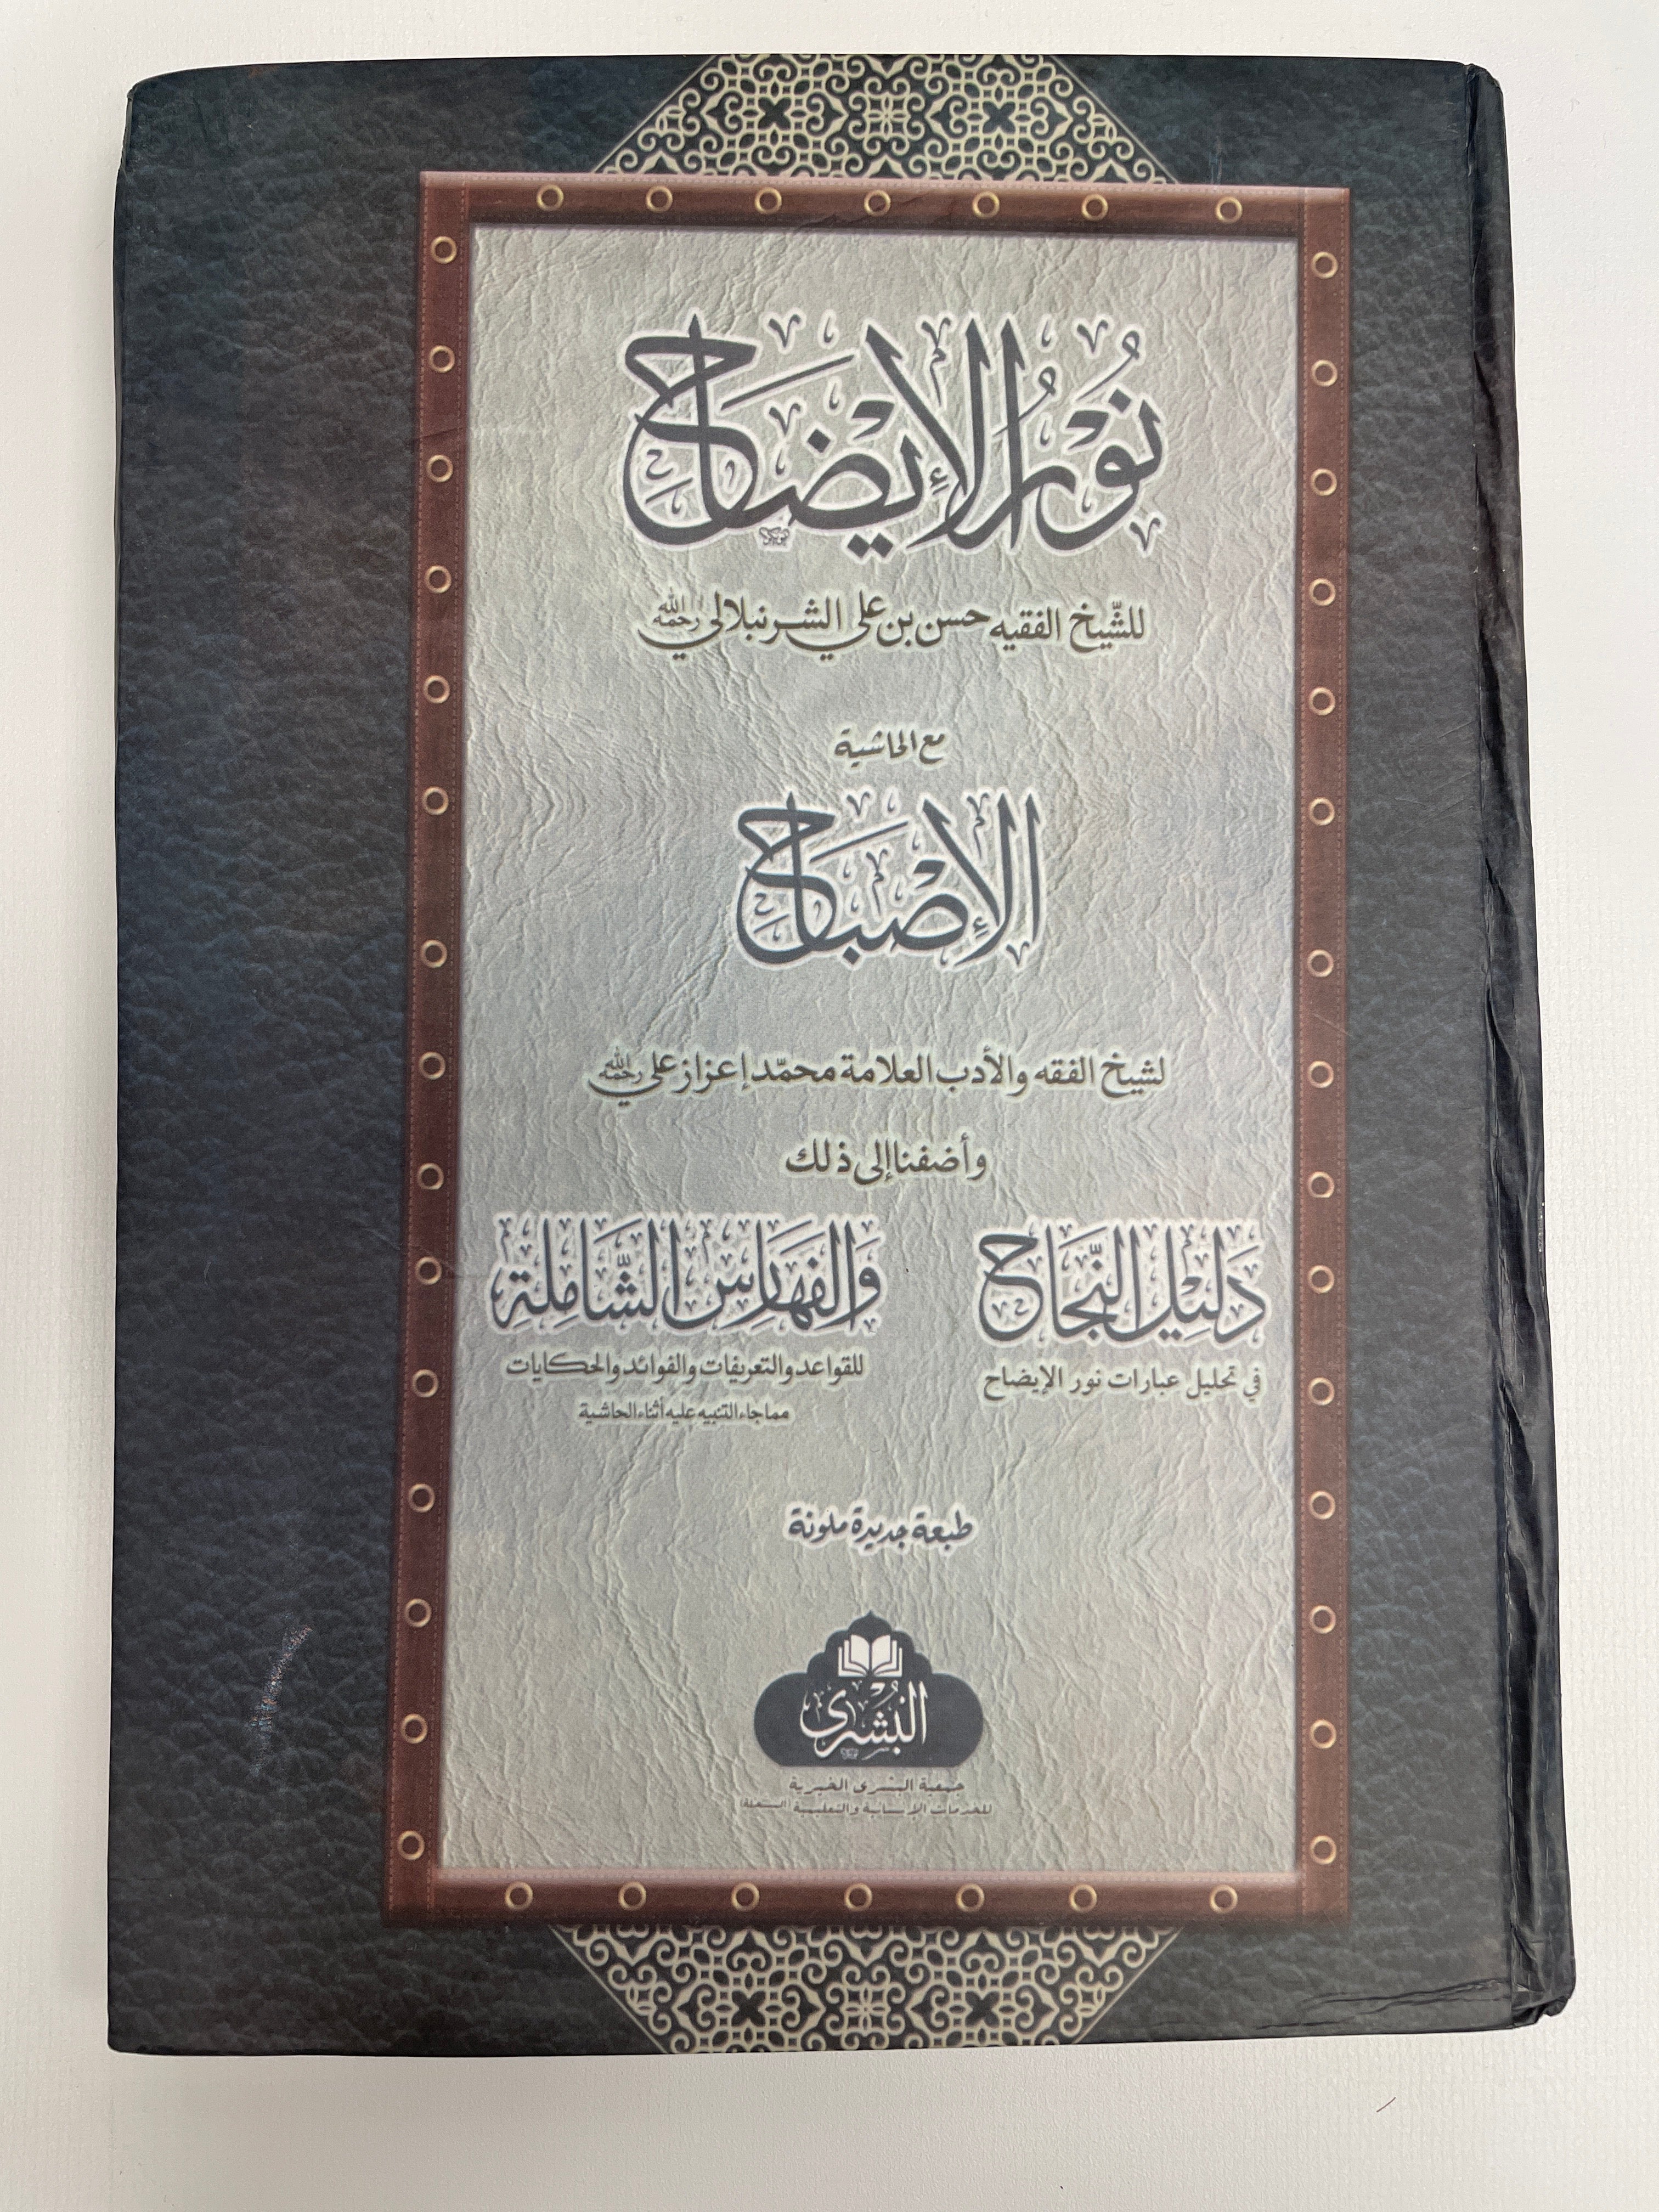 نُوْرُ الْإِيْضَاح
للشّيخ الفقيه حسن بن علي الشرنبلالي رحمه الله
مع الحاشية
الْإِصْبَاح
لشيخ الفقه والأدب العلامة محمّد إعزاز علي رحمه الله
وأضفنا إلى ذلك
دَلِيْل النَّجَاح
في تحليل عبارات نور الإيضاح
وَالفَهَارِس الشَّامِلَة
للقواعد والتعريفات والفوائد والحكايات
مما جاء التنبيه عليه أثناء الحاشية
طبعة جديدة ملونة
البُشْرٰى
جمعية البشرى الخيرية
للخدمات الإنسانية والتعليمية (المسجلة)